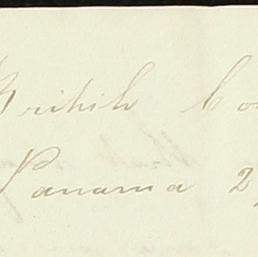 British Co
Panama 2